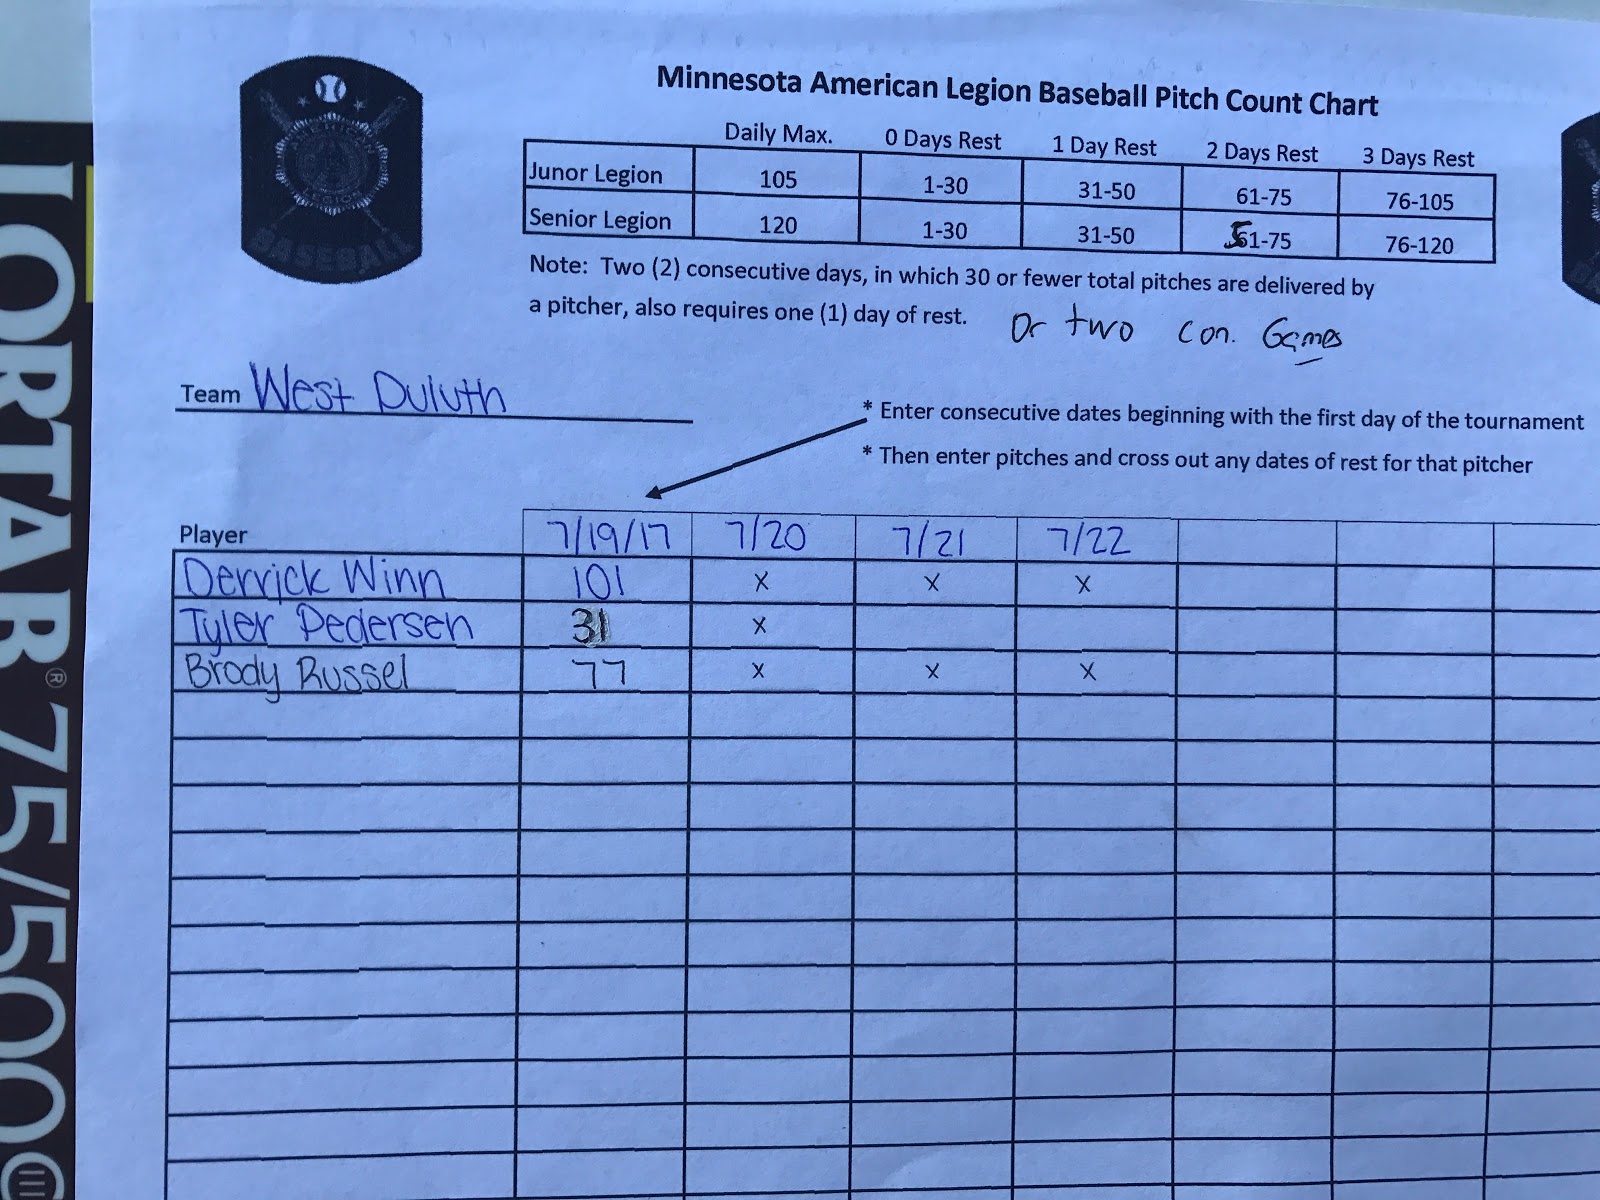 Minnesota American Legion Baseball Pitch Count Chart
Daily Max. 0 Days Rest 1 Day Rest 2 Days Rest 3 Days Rest
Junor Legion 105 1-30 31-50 61-75 76-105
Senior Legion 120 1-30 31-50 51-75 76-120
Note: Two (2) consecutive days, in which 30 or fewer total pitches are delivered by
a pitcher, also requires one (1) day of rest. Or two con. Games
Team West Duluth
* Enter consecutive dates beginning with the first day of the tournament
* Then enter pitches and cross out any dates of rest for that pitcher
Player 7/19/17 7/20 7/21 7/22
Derrick Winn 101 x x x
Tyler Pedersen 31 x
Brody Russel 77 x x x
AMERICAN
LEGION
BASEBALL
TORTAB® 75/500